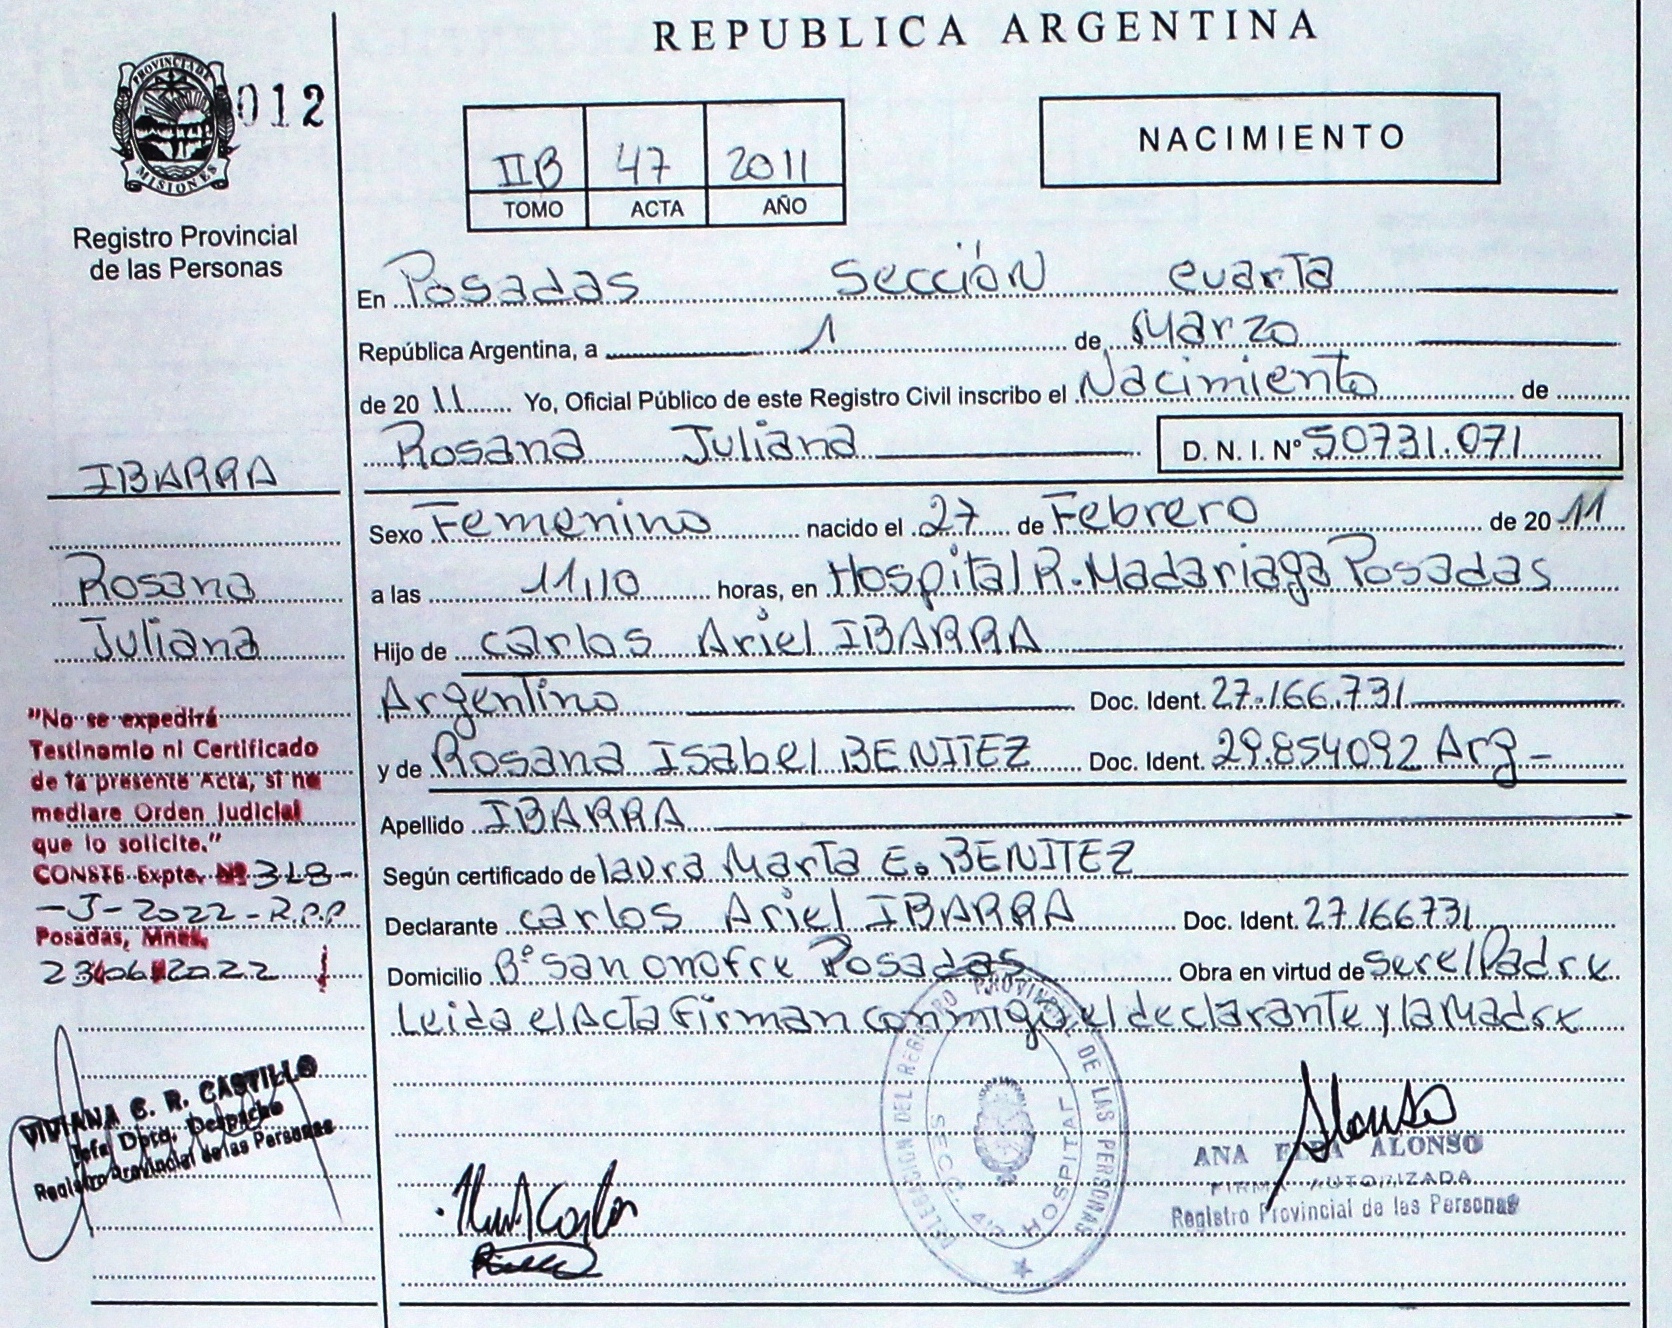 REPUBLICA ARGENTINA
PROVINCIA DE
MISIONES
012
Registro Provincial
de las Personas
IIB 47 2011
TOMO ACTA AÑO
NACIMIENTO
En Posadas Sección cuarta
República Argentina, a 1 de Marzo
de 2011 Yo, Oficial Público de este Registro Civil inscribo el Nacimiento de
Rosana Juliana D. N. I. Nº 50731.071
IBARRA
Rosana
Juliana
Sexo Femenino nacido el 27 de Febrero de 2011
a las 11,10 horas, en Hospital R. Madariaga Posadas
Hijo de Carlos Ariel IBARRA
Argentino Doc. Ident. 27.166.731
y de Rosana Isabel BENITEZ Doc. Ident. 29.854092 Arg-
Apellido IBARRA
Según certificado de laura Marta E. BENITEZ
Declarante Carlos Ariel IBARRA Doc. Ident. 27.166731
Domicilio Bº San Onofre Posadas Obra en virtud de ser el Padre
Leida el Acta Firman conmigo el declarante y la Madre
"No se expedirá
Testinamio ni Certificado
de la presente Acta, si no
mediare Orden Judicial
que lo solicite."
CONSTE Expte. Nº 318-
-J-2022-R.P.P
Posadas, Mnes.
23/06/2022
VIVIANA C. R. CASTILLO
Jefa Dpto. Despacho
Registro Provincial de las Personas
DELEGACION DEL REGISTRO PROVINC. DE LAS PERSONAS
SECC. 4ta HOSPITAL
Alonso
ANA ALONSO
FIRMA AUTORIZADA
Registro Provincial de las Personas